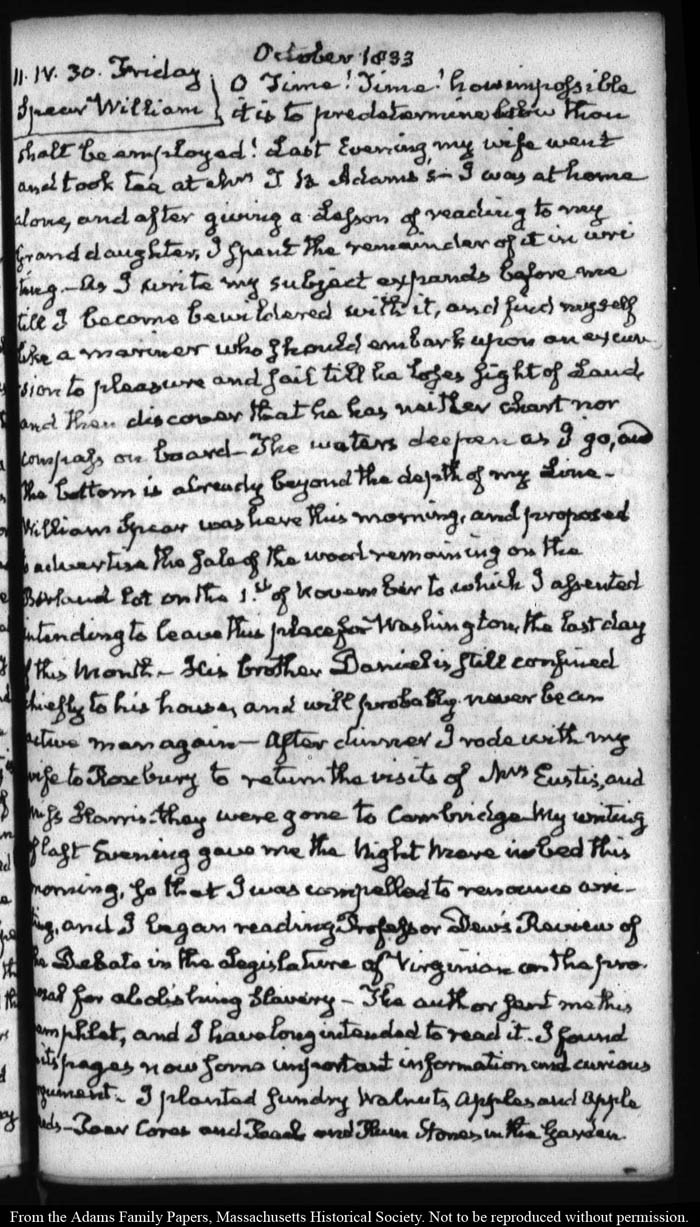 October 1833
11. IV. 30. Friday
Spear William
O Time! Time! how impossible
it is to predetermine how thou
shalt be employed! Last Evening, my wife went
and took tea at Mrs T. B. Adams's – I was at home
alone, and after giving a Lesson of reading to my
Granddaughter, I spent the remainder of it in wri
ting. – As I write my subject expands before me
till I become bewildered with it, and find myself
like a mariner who should embark upon an excur
sion to pleasure and sail till he loses sight of Land,
and then discover that he has neither chart nor
compass on board – The waters deepen as I go, and
the bottom is already beyond the depth of my Line –
William Spear was here this morning, and proposed
to advertise the sale of the wood remaining on the
Borland lot on the 1.st of November to which I assented
intending to leave this place for Washington, the last day
of this Month – His brother Daniel is still confined
chiefly to his house, and will probably never be an
active man again – After dinner I rode with my
wife to Roxbury to return the visits of Mrs Eustis, and
Miss Harris: they were gone to Cambridge. My writing
of last Evening gave me the Night Mare in bed this
morning, so that I was compelled to renounce wri–
ting, and I began reading Professor Dew's Review of
the Debate in the Legislature of Virginia on the pro
posal for abolishing Slavery – The author sent me this
pamphlet, and I have long intended to read it. I found
in its pages now some important information and curious
argument – I planted sundry Walnuts, Apples and Apple
seeds – Pear Cores and Peach and Plum Stones in the Garden.
From the Adams Family Papers, Massachusetts Historical Society. Not to be reproduced without permission.